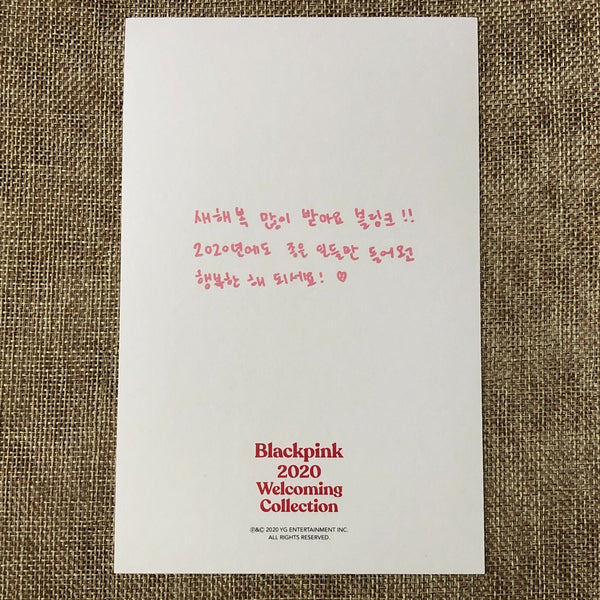 새해 복 많이 받아요 블링크!!
2020년에도 좋은 일들만 들어오고
행복한 해 되세요! ♡
Blackpink
2020
Welcoming
Collection
℗&© 2020 YG ENTERTAINMENT INC.
ALL RIGHTS RESERVED.